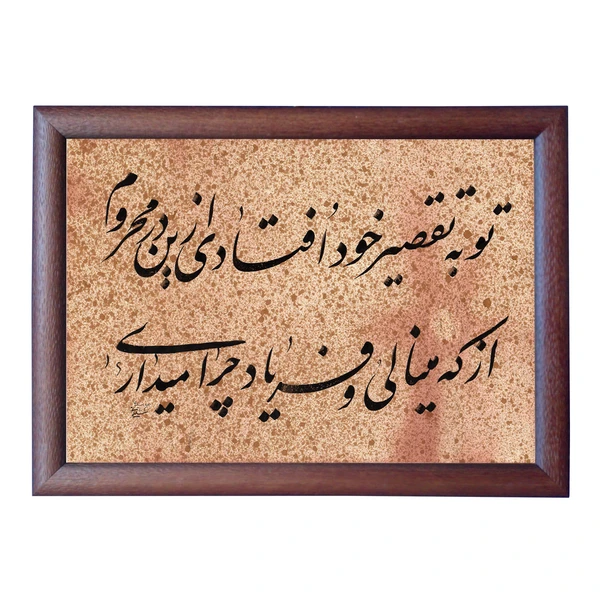 تو به تقصیر خود افتادی ازین در محروم
از که مینالی و فریاد چرا میداری